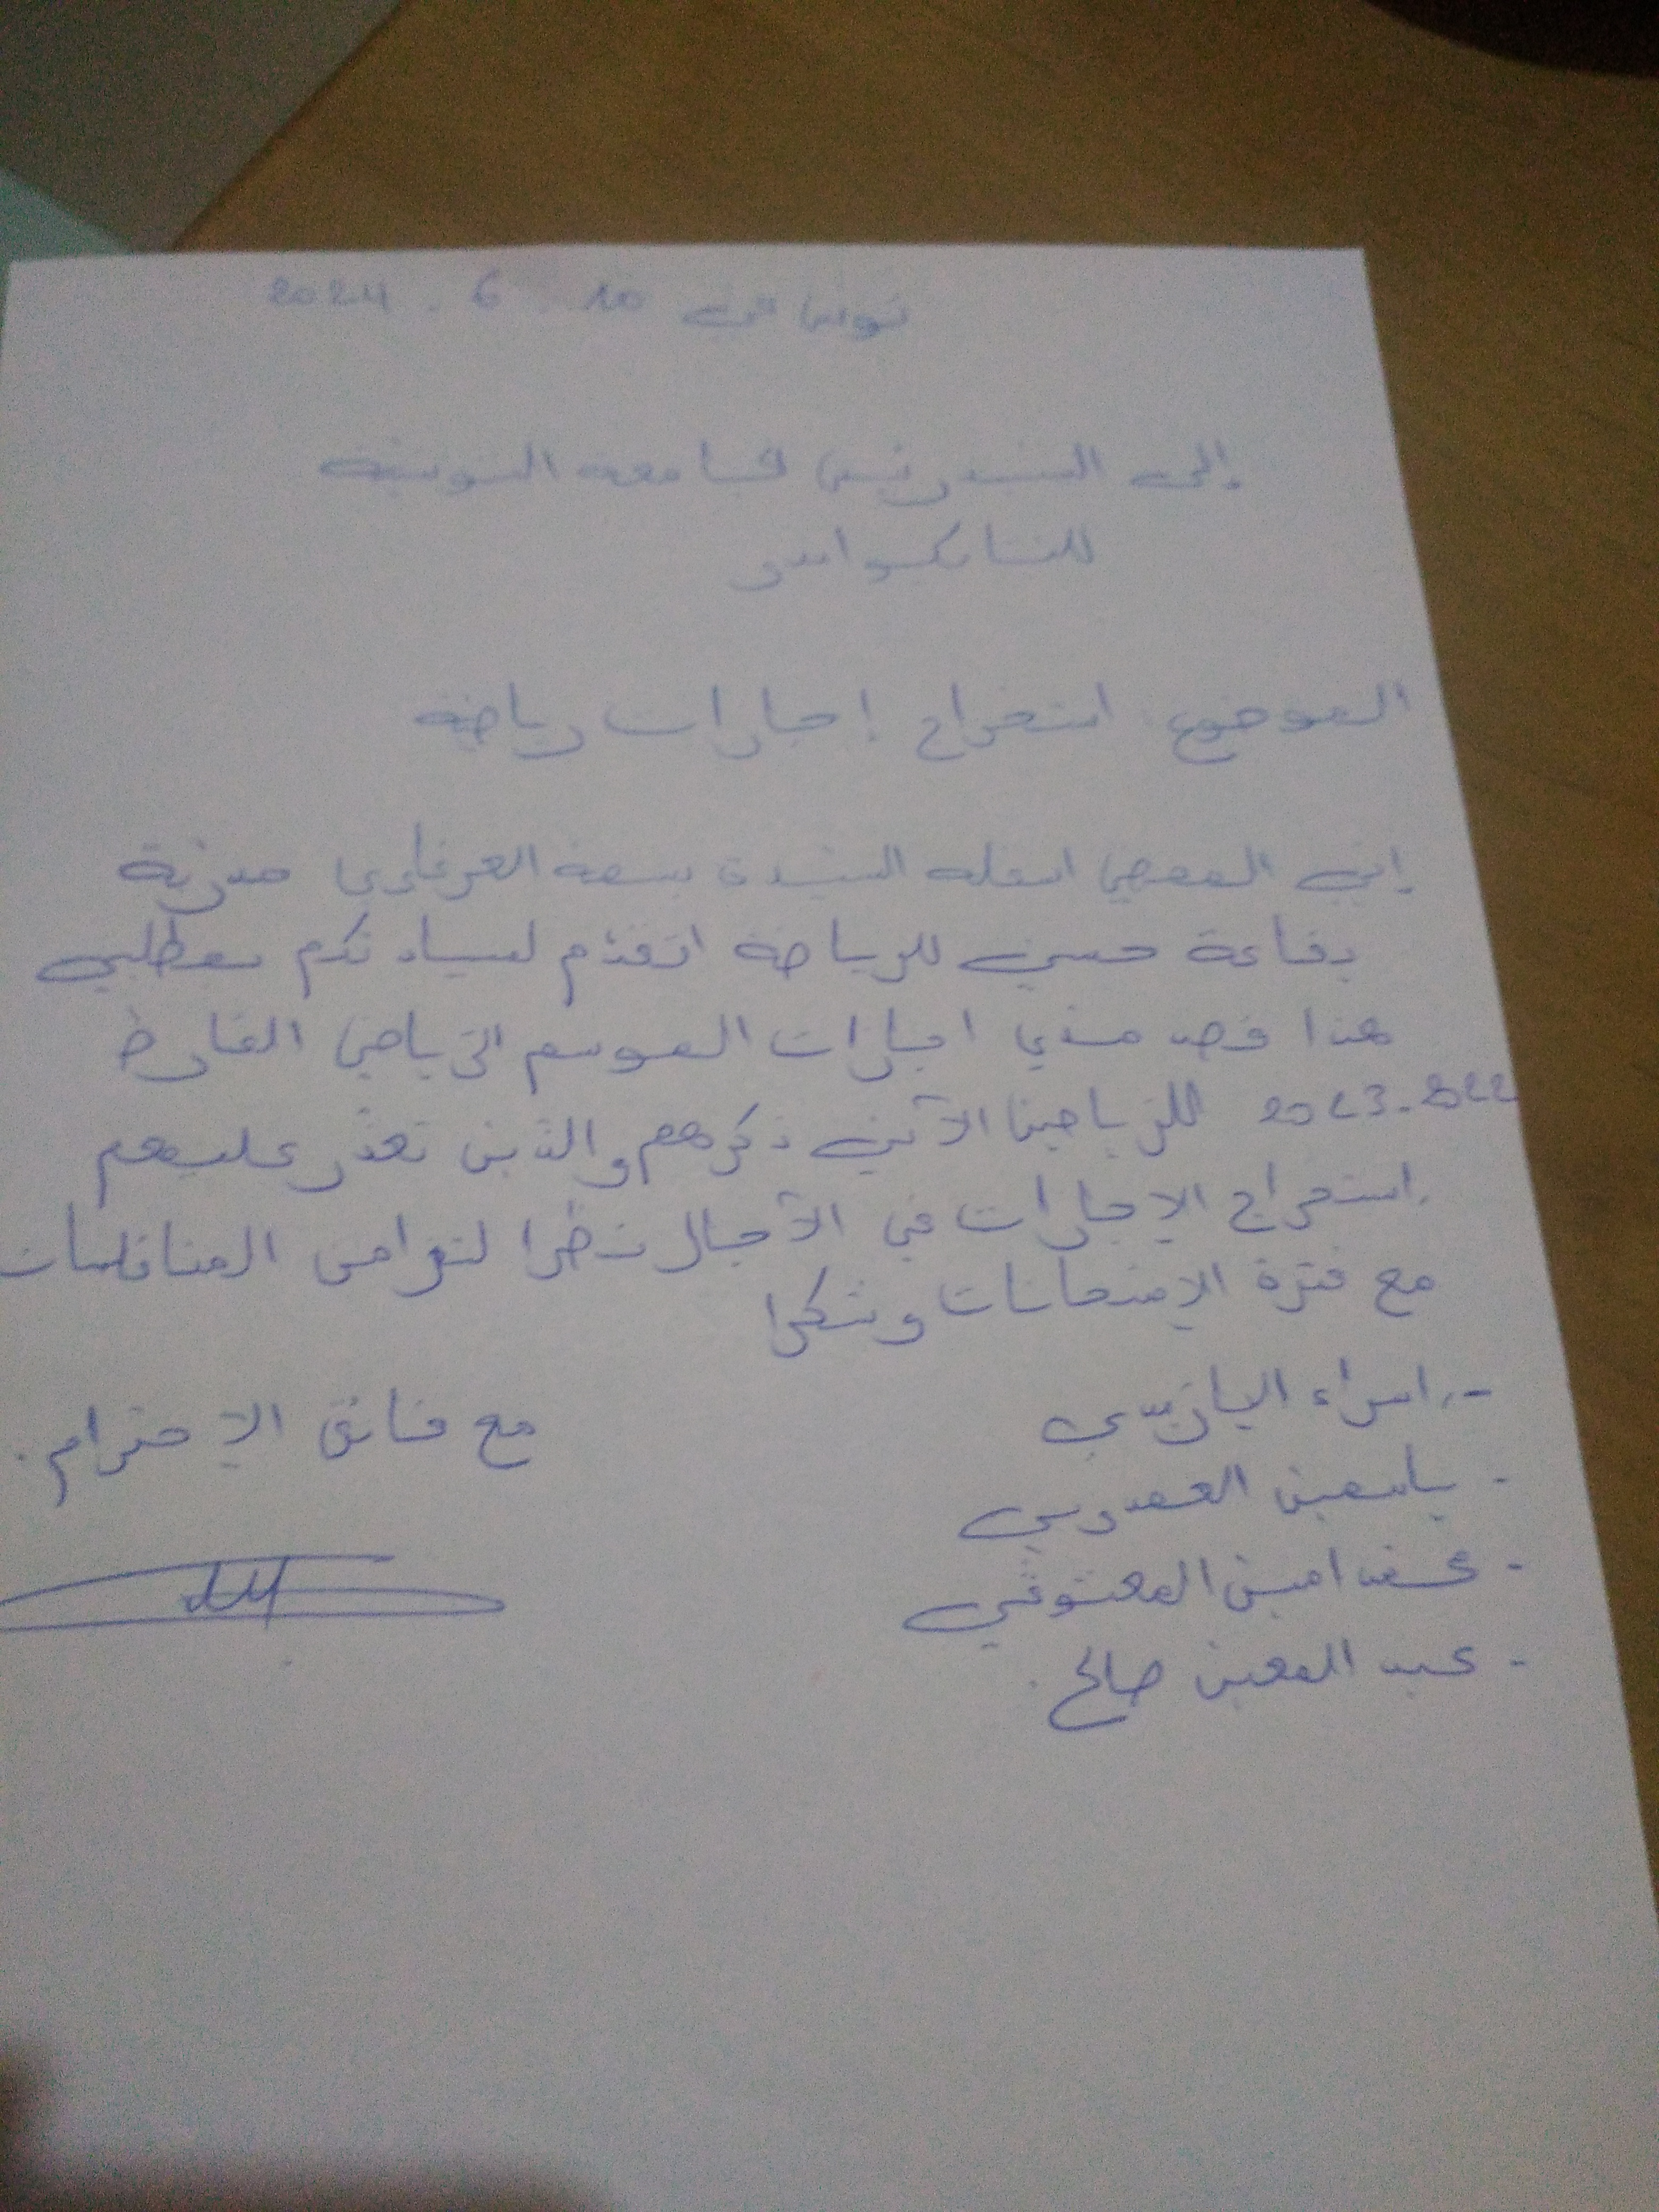 تونس في 10 . 6 . 2024
إلى السيد رئيس الجامعة التونسية
للتايكواندو
الموضوع استخراج إجازات رياضية
إني الممضي اسفله السيدة بسمة العرفاوي مدربة
بقاعة حسني للرياضة اتقدّم لسيادتكم بمطلبي
هذا قصد مدّي اجازات الموسم الرّياضي الفارط
2023-2022 للرّياضيين الآتي ذكرهم والذين تعذّر عليهم
استخراج الإجازات في الآجال نظرا لتزامن المناقلات
مع فترة الإمتحانات وشكرا
- إسراء اليازيدي
مع فائق الاحترام.
- ياسمين العمدوني
- محمد امين المعتوقي
- عبد المعين صالح